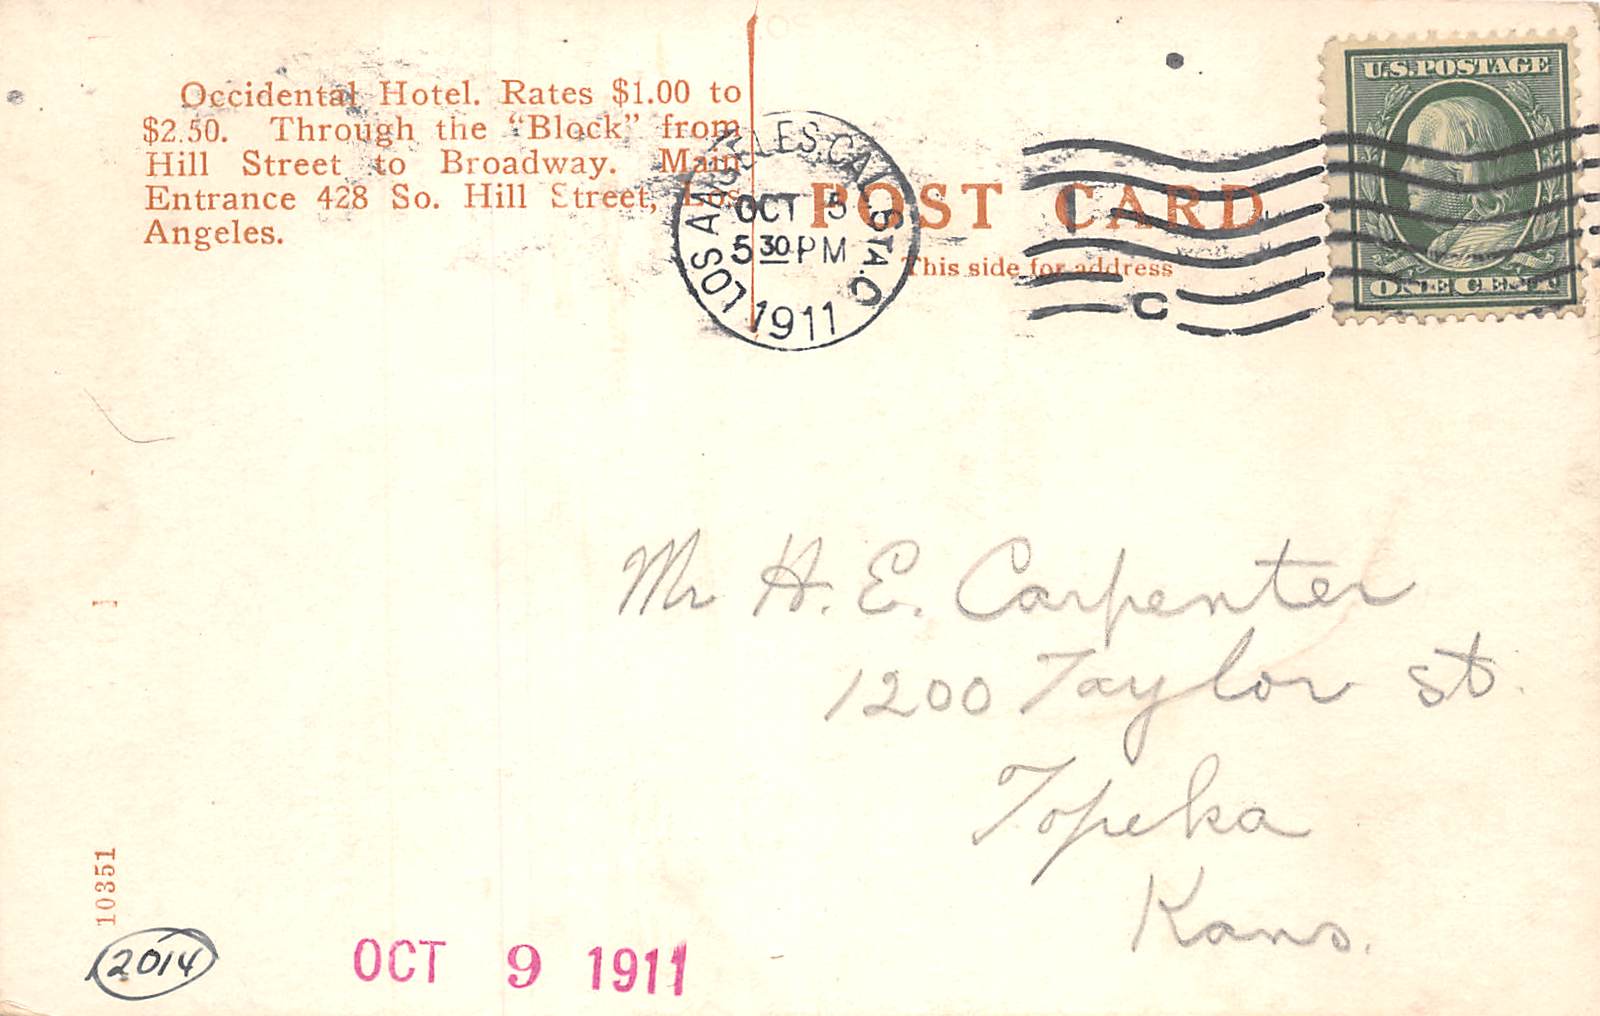 Occidental Hotel. Rates $1.00 to
$2.50. Through the "Block" from
Hill Street to Broadway. Main
Entrance 428 So. Hill Street, Los
Angeles.
LOS ANGELES, CAL. STA. C
OCT 5
5 30 PM
1911
C
U.S. POSTAGE
ONE CENT
POST CARD
This side for address
Mr H. E. Carpenter
1200 Taylor St.
Topeka
Kans.
10351
2014
OCT 9 1911